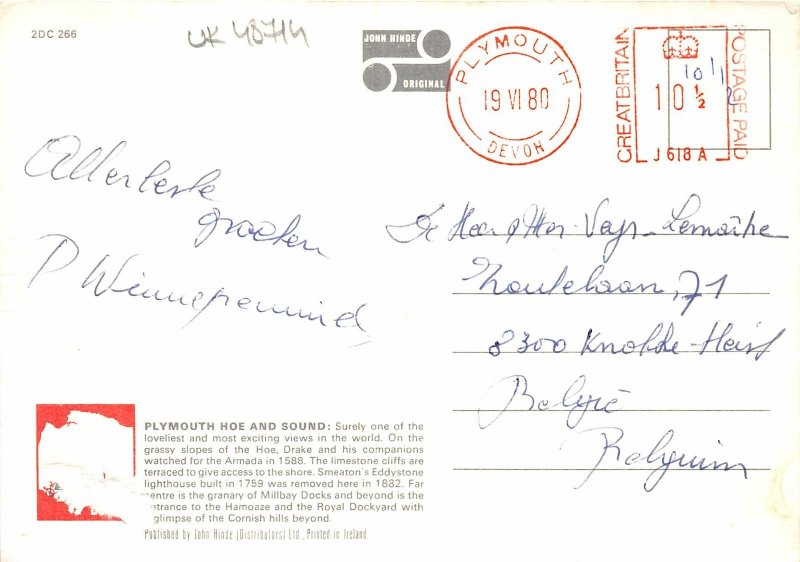 2DC 266
UK 48714
JOHN HINDE
ORIGINAL
PLYMOUTH
19 VI 80
DEVON
GREAT BRITAIN
10 1/2
POSTAGE PAID
J 618 A
Allerbeste
groeten
P
De Heer & Mevr Veys-Lemaître
Zoutelaan, 71
8300 Knokke-Heist
België
Belgium
PLYMOUTH HOE AND SOUND: Surely one of the
loveliest and most exciting views in the world. On the
grassy slopes of the Hoe, Drake and his companions
watched for the Armada in 1588. The limestone cliffs are
terraced to give access to the shore. Smeaton's Eddystone
lighthouse built in 1759 was removed here in 1882. Far
entre is the granary of Millbay Docks and beyond is the
ntrance to the Hamoaze and the Royal Dockyard with
glimpse of the Cornish hills beyond.
Published by John Hinde (Distributors) Ltd., Printed in Ireland